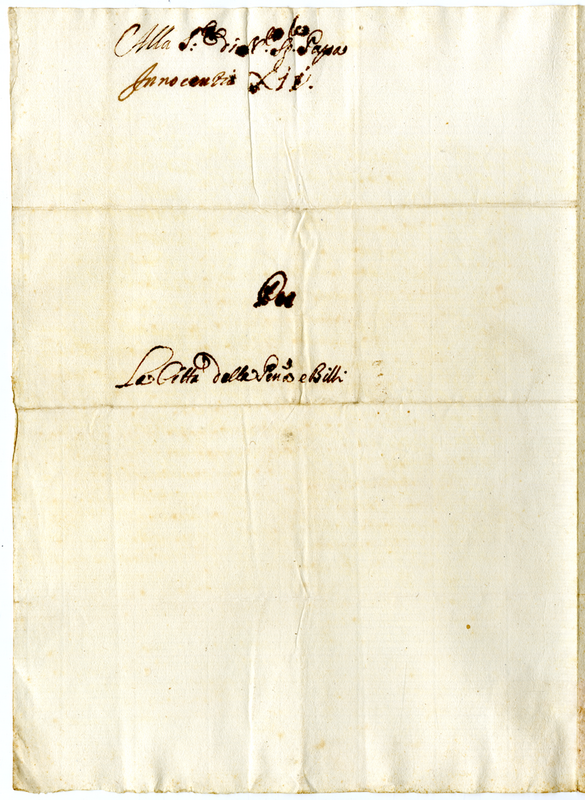 Alla S.tà di N.ro Sig.re Papa
Innocentio XII.
Per
La Città della Penna e Billi